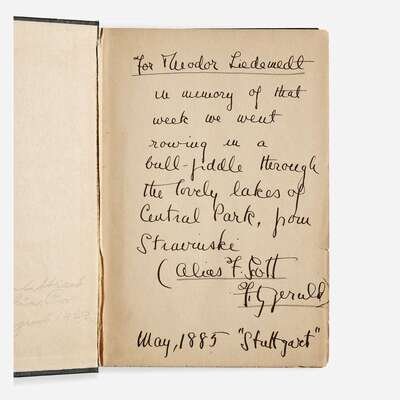 For Theodor Liedemedt
in memory of that
week we went
rowing in a
bull-fiddle through
the lovely lakes of
Central Park, from
Stravinske
(Alias F. Scott
Fitzgerald)
May, 1885 "Stuttgart"